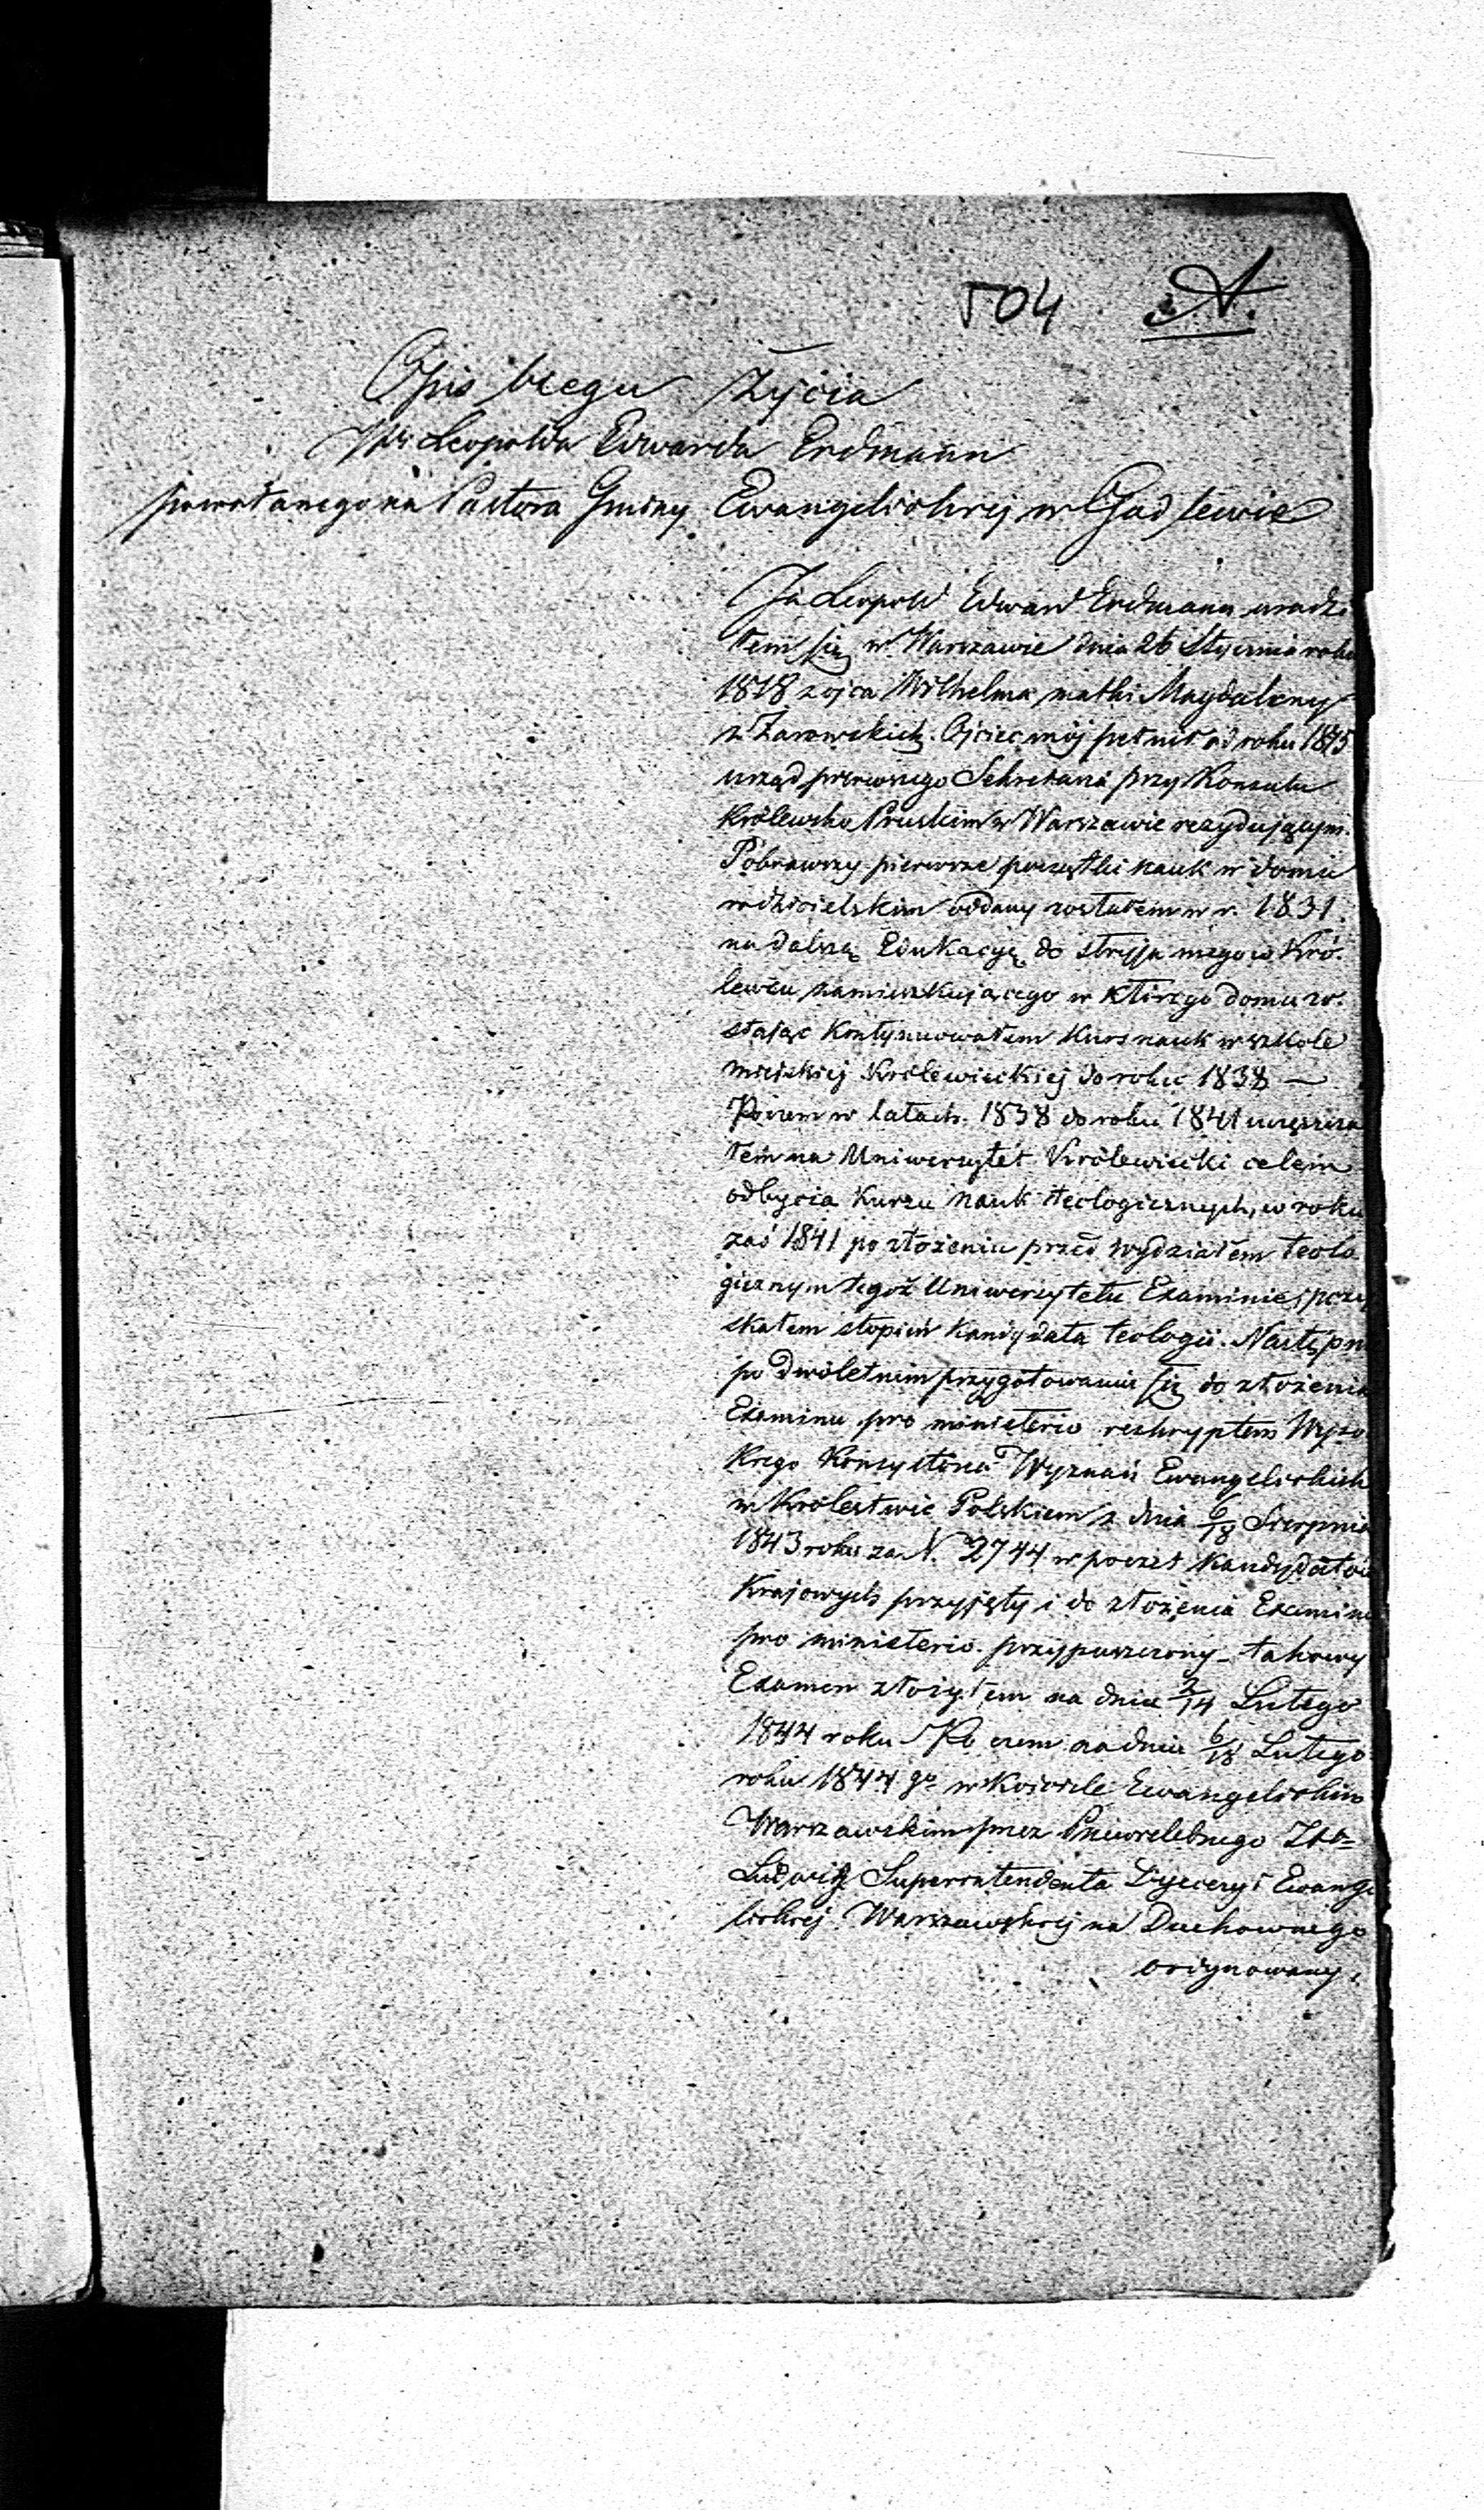 504 A.
Opis biegu życia
Leopolda Edwarda Erdmann
powołanego na Pastora Gminy Ewangelickiej w
Ja Leopold Edward Erdmann urodzi
łem się w Warszawie dnia 26 Stycznia roku
1818 z ojca Wilhelma matki Magdaleny
z Żarowskich. Ojciec mój pełnił od roku 1815
urząd pierwszego Sekretarza przy Konsulu
Królewsko Pruskim w Warszawie rezydującym.
Pobrawszy pierwsze początki nauk w domu
rodzicielskim oddany zostałem w r. 1831.
na dalszą Edukacyę do stryja mego w Kró-
lewcu zamieszkującego w którego domu zo-
stając kontynuowałem kurs nauk w szkole
miejskiej Królewieckiej do roku 1838 —
Poczem w latach 1838 do roku 1841 uczęszcza
łem na Uniwersytet Królewiecki celem
odbycia kursu nauk teologicznych, w roku
zaś 1841 po złożeniu przed wydziałem teolo
gicznym tegoż Uniwersytetu Examinie, pozy
skałem stopień kandydata teologii. Następni
po dwóletnim przygotowaniu się do złożenia
Examinu pro ministerio reskryptem Wyso
kiego Konsystorza Wyznań Ewangelickich
w Królestwie Polskiem z dnia 6/18 Sierpnia
1843 roku za N. 2744 w poczet kandydatów
krajowych przyjęty i do złożenia Examinu
pro ministerio przypuszczony – takowy
Examen złożyłem na dniu 2/14 Lutego
1844 roku Po czem na dniu 6/18 Lutego
roku 1844 go w Kościele Ewangelickim
Warszawskim przez Przewielebnego
Ludwig Superintendenta Dyecezyi Ewange
lickiej Warszawskiej na Duchownego
ordynowany,